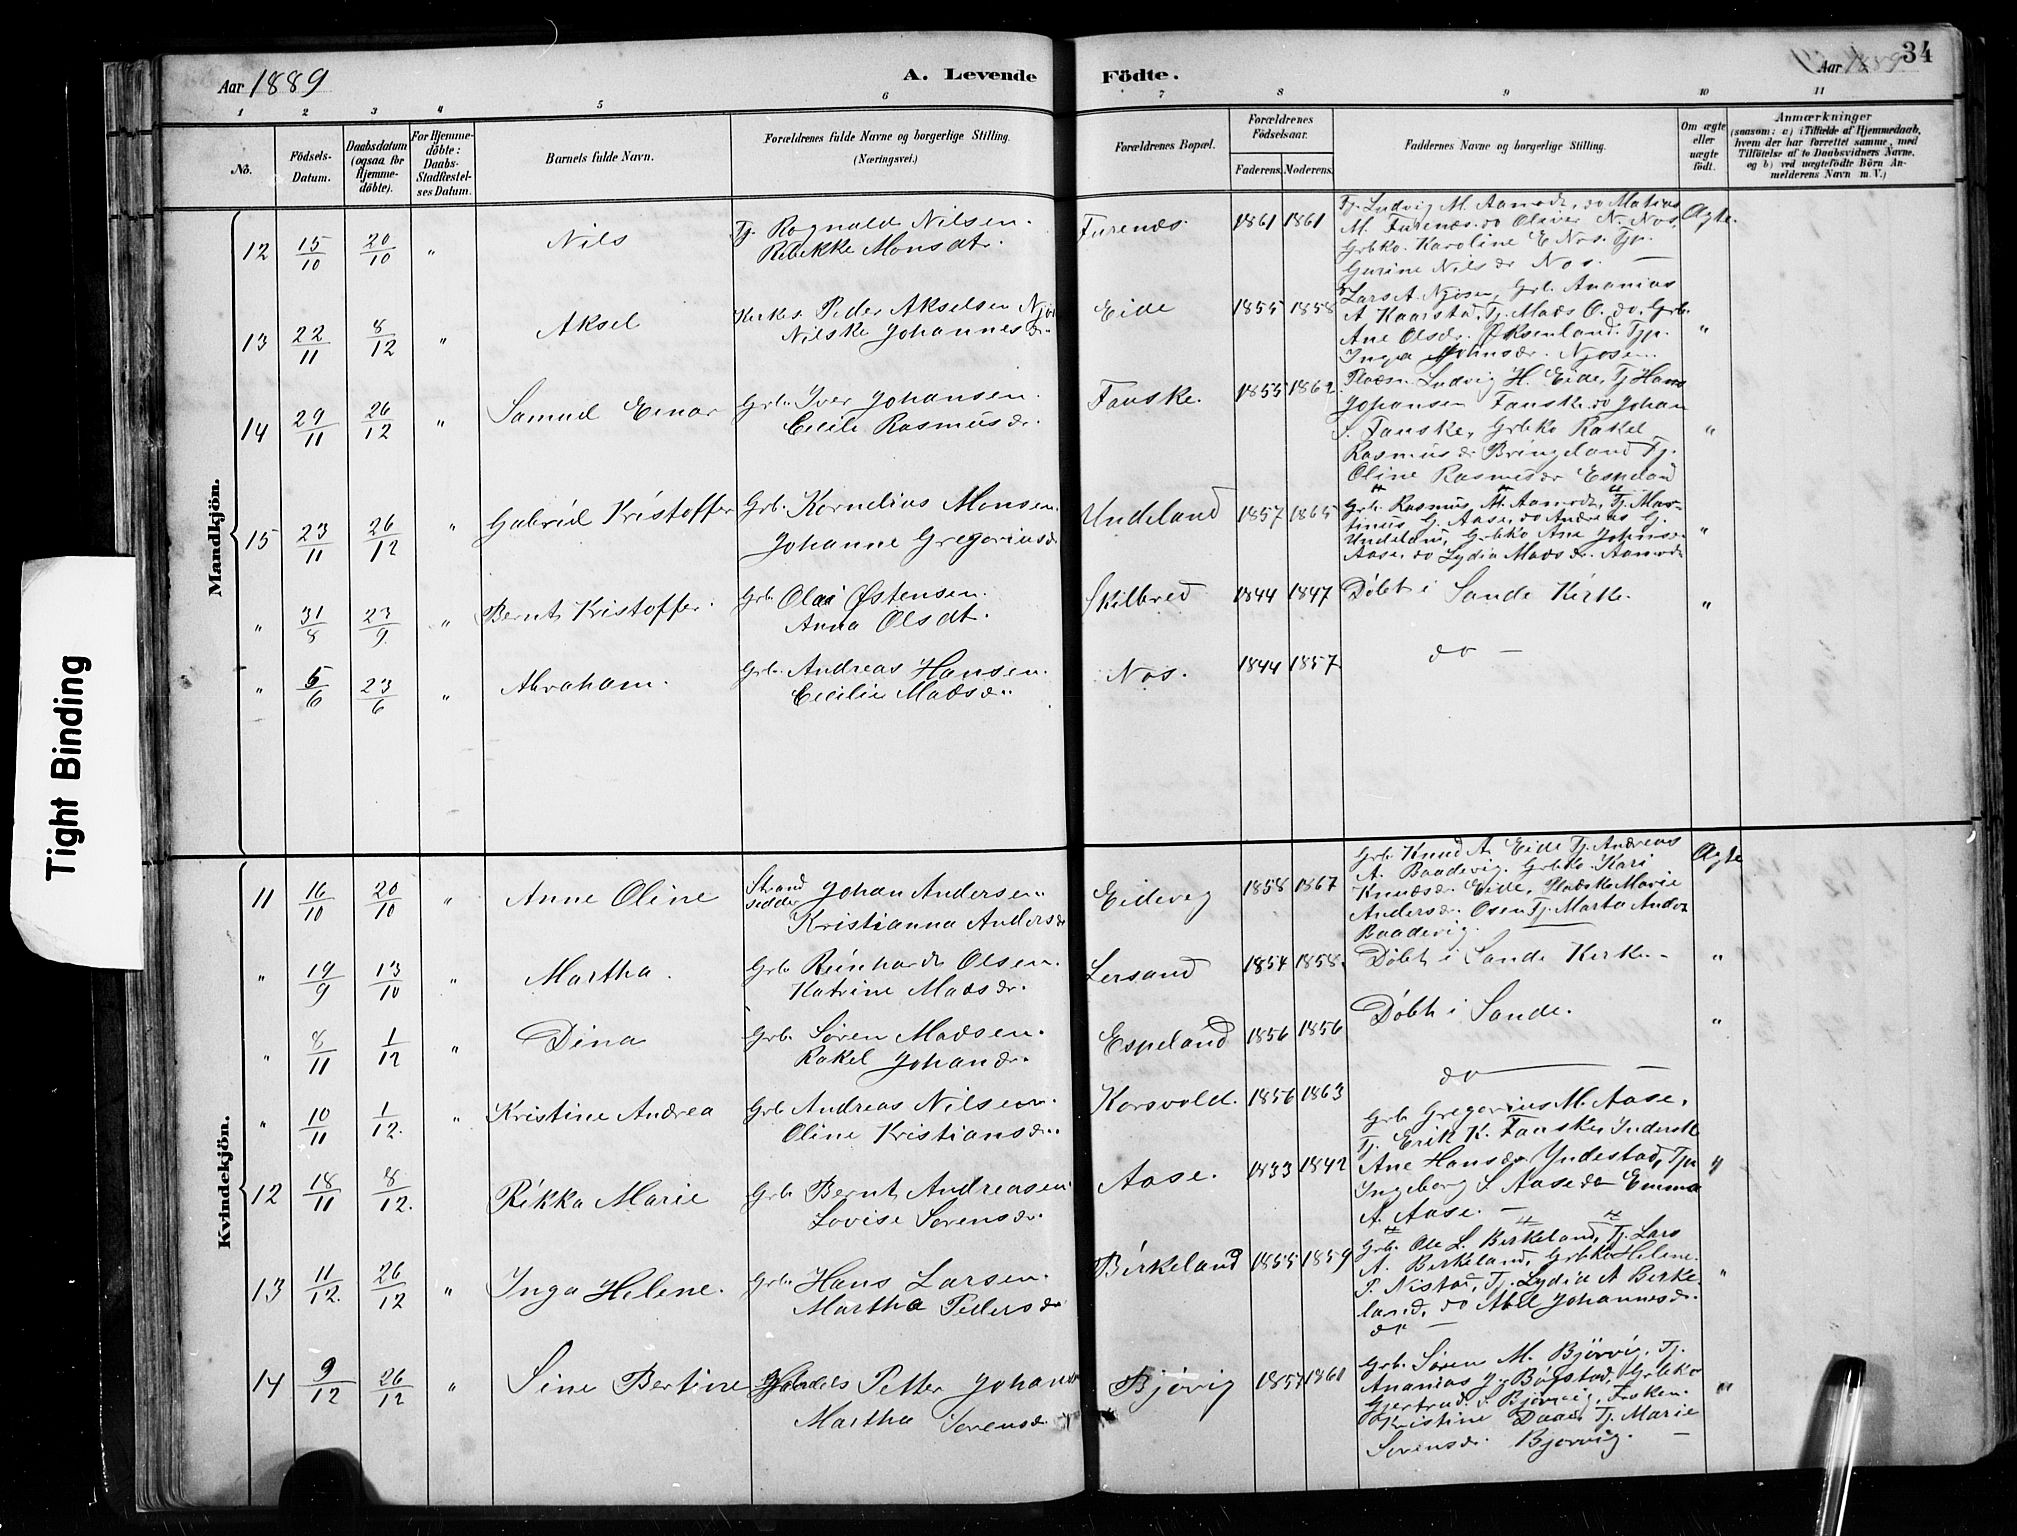 Aar 1889
A. Levende Födte.
Aar 1889
34
1 2 3 4 5 6 7 8 9 10 11
No.
Födsels-Datum.
Daabsdatum (ogsaa for Hjemmedöbte).
For Hjemmedöbte: Daabs-Stadfæstelses Datum.
Barnets fulde Navn.
Forældrenes fulde Navne og borgerlige Stilling. (Næringsvei.)
Forældrenes Bopæl.
Forældrenes Födselsaar.
Faderens. Moderens.
Faddernes Navne og borgerlige Stilling.
Om ægte eller uægte födt.
Anmærkninger
(saasom: a) i Tilfælde af Hjemmedaab, hvem der har forrettet samme, med Tilföielse af to Daabsvidners Navne, og b) ved uægtefödte Börn Anmelderens Navn m. V.)
Mandkjön.
12 15/10 20/10 " Nils
Tj. Rognald Nilsen.
Rebekke Monsdtr.
Furenæs. 1861 1861
Tj. Ludvig M. Aamodt, do Matias
M. Furenæs. do Oliver N. Nos,
Grbko. Karoline E Nos. Tjp.
Gurine Nilsdr Nos. —
Ægte.
13 22/11 8/12 " Aksel
Kirkes. Peder Akselsen
Nilske Johannesdr.
Eide 1855 1858
Lars A. Njøsen, Grb. Ananias
A Kaarstad, Tj. Mads O. do, Grb.
Ane Olsdr. Øksenland. Tjp.
Inga Johnsdr. Njøsen.
"
14 29/11 26/12 " Samuel Einar
Grb. Iver Johansen.
Cecile Rasmusdr.
Fauske. 1855 1862
Pladsm. Ludvig H. Eide, Tj Hans
Johansen Fauske. do Johan
S. Fauske, Grbko Rakel
Rasmusdr Bringeland Tj.
Oline Rasmusdr Espeland
"
15 23/11 26/12 " Gabriel Kristoffer
Grb. Kornelius Monsen.
Johanne Gregoriusdr
Undeland 1857 1865
Grb. Rasmus M. Aamodt, Tj. Mar-
tinus G. Aase, do Andreas G.
Undeland, Grbko Ane Johnsdr
Aase, do Lydia Madsdr. Aamodt
"
" 31/8 23/9. " Bernt Kristoffer.
Grb. Olai Østensen.
Anna Olsdt.
Skilbred 1844 1847 Døbt i Sande Kirke. "
" 5/6 23/6 " Abraham.
Grb. Andreas Hansen.
Cecilie Madsdr.
Nos. 1844 1857 do —
Kvindekjön.
11 16/10 20/10 " Anne Oline
Strand sidder Johan Andersen
Kristianna Andersdr
Eidevig 1858 1867
Grb. Knud A. Eide Tj. Andreas
A. Baadevig. Grbko. Kari
Knudsdr. Eide, Pladsk. Marie
Andersdr. Osen Tj. Marta Anders
Baadevig. —
Ægte
" 19/9 13/10 " Martha.
Grb Reinhardt Olsen.
Katrine Madsdr.
Lersand 1854 1858. Døbt i Sande Kirke.- "
" 8/11 1/12 " Dina
Grb. Søren Madsen.
Rakel Johandr.
Espeland 1856 1856 Døbt i Sande. "
" 10/11 1/12. " Kristine Andrea
Grb Andreas Nilsen.
Oline Kristiansdr.
Korsvold. 1856 1863 do —
12 18/11 8/12. Rikka Marie
Grb. Bernt Andreasen
Lovise Sørensdr.
Aase. 1833 1842
Grb Gregorius M. Aase,
Tj. Erik K. Fauske, Inderstk
Ane Hansdr Yndestad, Tjp
Ingeborg S. Aase do Emma
A. Aase. —
"
13 11/12. 26/12 " Inga Helene.
Grb. Hans Larsen.
Martha Pedersdr
Birkeland 1855 1859
Grb. Ole L. Birkeland, Tj. Lars
A. Birkeland, Grbko Helene
P. Nistad, Tj. Lydia A Birke-
land, do Abel Johannesdr.
do —
"
14 9/12 26/12 " Sine Bertine
Petter Johans
Martha Sørensdr
Bjøvig 1857 1860
Grb. Søren M. Bjørvig, Tj.
Ananias J. Bøgstad, Grbko
Gjertrud S. Bjørvig, Frøken
Kristine Daae, Tj. Marie
Sørensdr. Bjørvig. —
"
Tight Binding